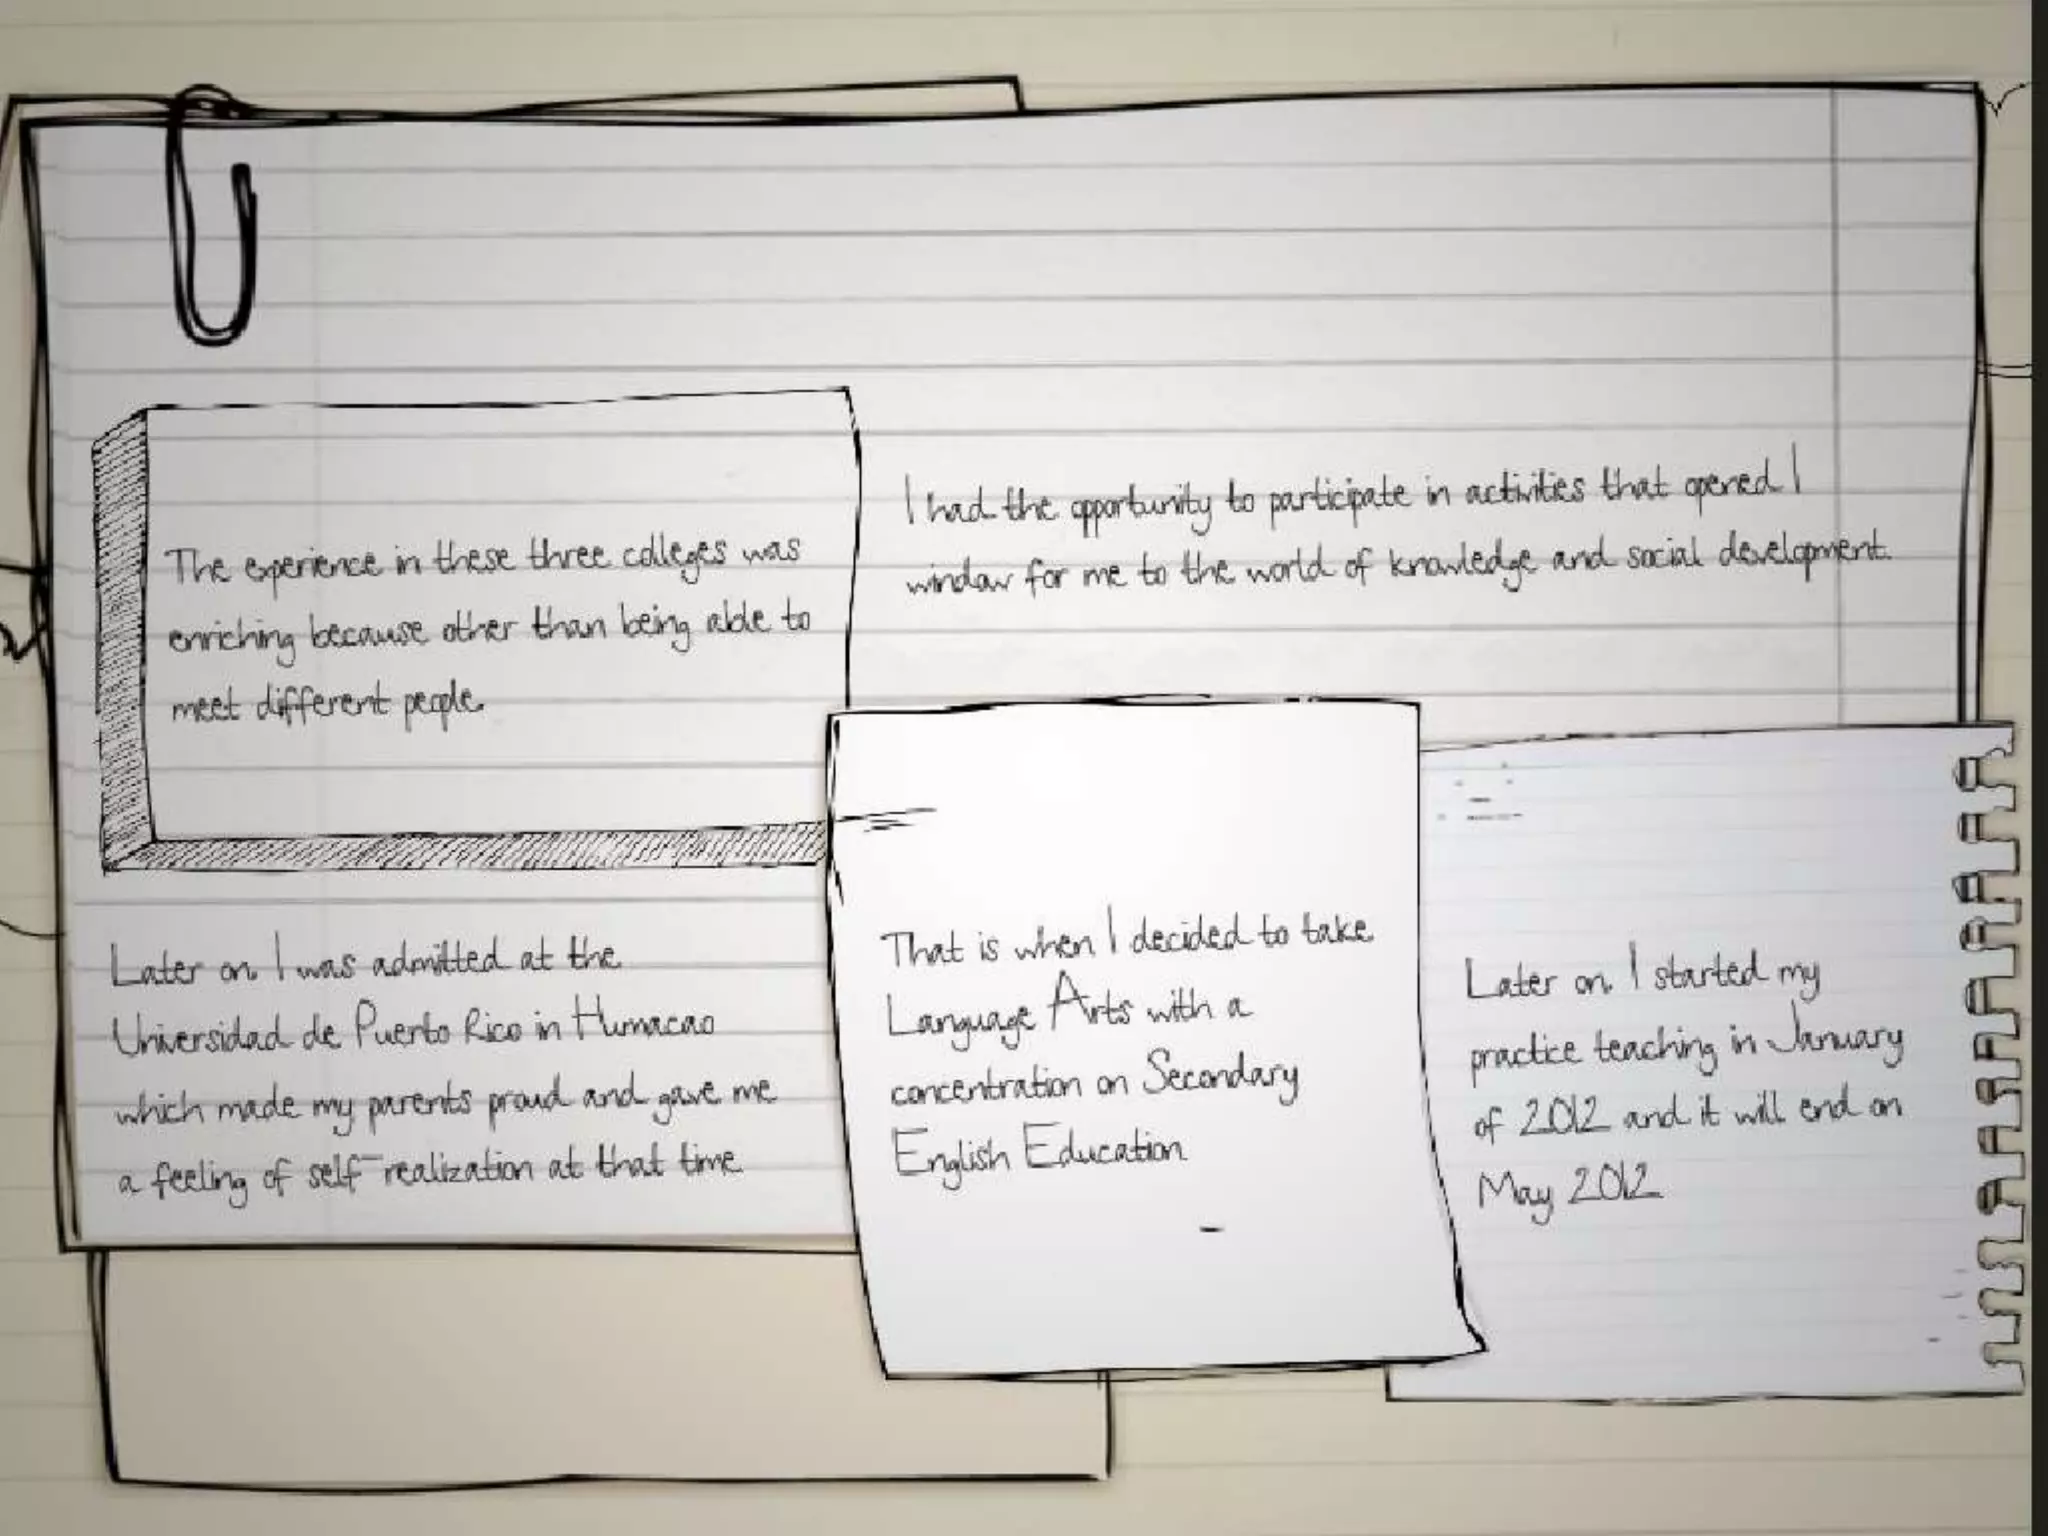 The experience in these three colleges was
enriching because other than being able to
meet different people.
I had the opportunity to participate in activities that opened I
window for me to the world of knowledge and social development.
Later on, I was admitted at the
Universidad de Puerto Rico in Humacao
which made my parents proud and gave me
a feeling of self-realization at that time
That is when I decided to take
Language Arts with a
concentration on Secondary
English Education
Later on, I started my
practice teaching in January
of 2012 and it will end on
May 2012